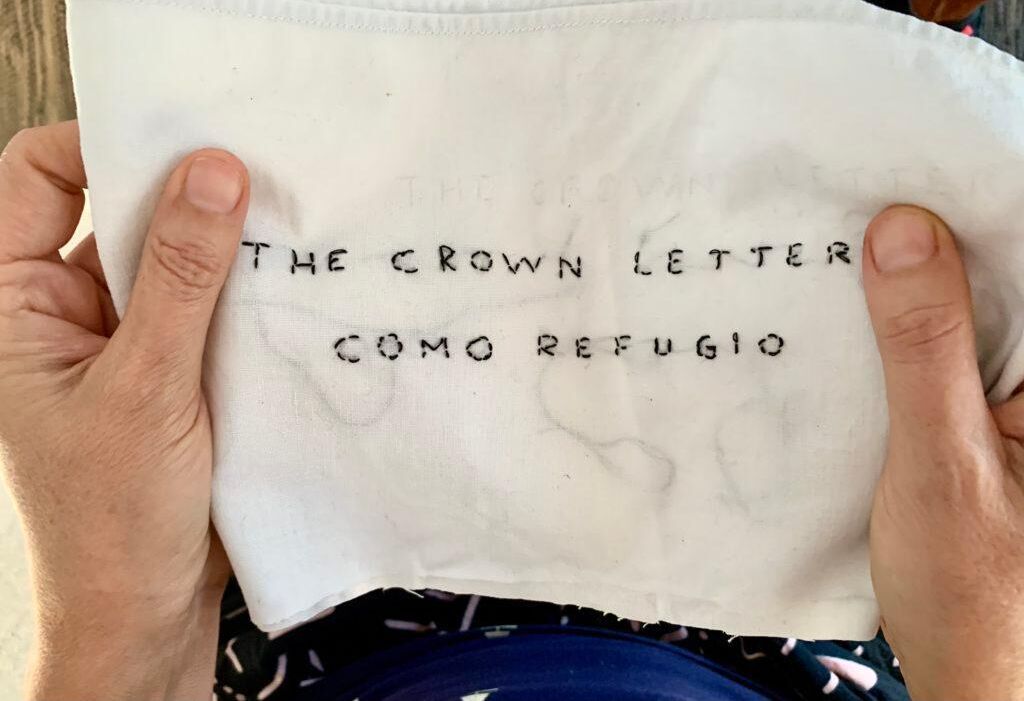 THE CROWN LETTER
COMO REFUGIO